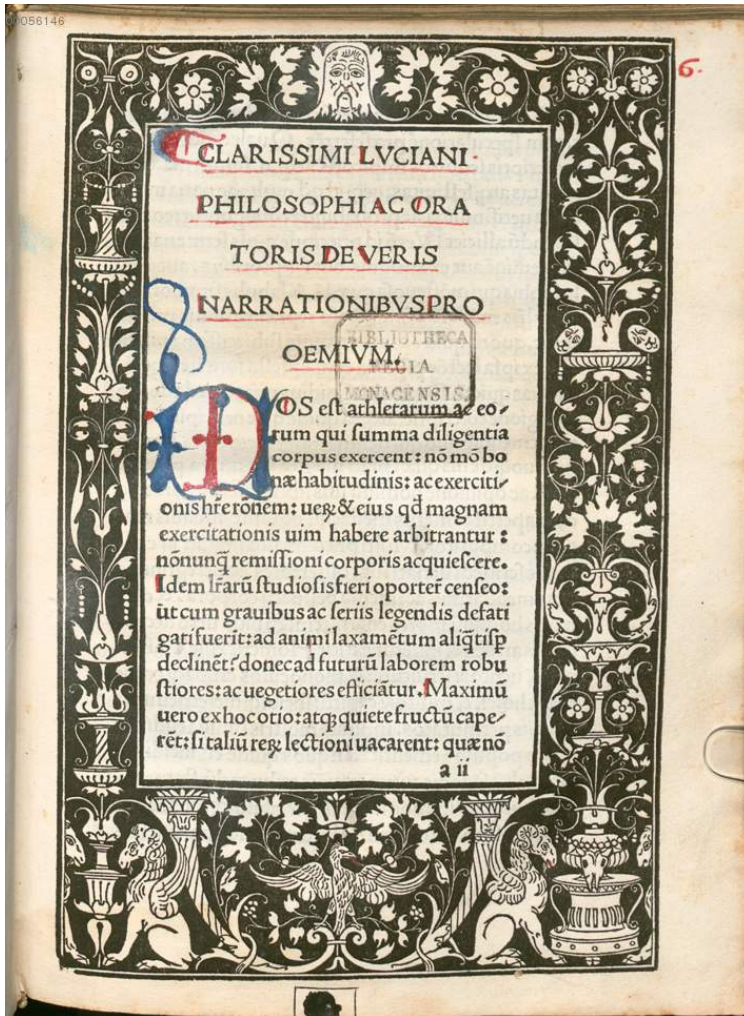 00056146
6.
CLARISSIMI LVCIANI
PHILOSOPHI AC ORA
TORIS DE VERIS
NARRATIONIBVS PRO
OEMIVM.
BIBLIOTHECA
REGIA
MONACENSIS.
MOS est athletarum ac eo⸗
rum qui summa diligentia
corpus exercent: nō mō bo
næ habitudinis: ac exerciti⸗
onis hr̄e rōnem: ueꝝ & eius qđ magnam
exercitationis uim habere arbitrantur:
nōnunq̄ remissioni corporis acquiescere.
Idem lr̄arū studiosis fieri oporter̄ censeo:
ut cum grauibus ac seriis legendis defati
gati fuerīt: ad animi laxamētum aliq̄tisꝑ
declinēt? donec ad futurū laborem robu
stiores: ac uegetiores efficiātur. Maximū
uero ex hoc otio: atqꝫ quiete fructū cape⸗
rēt: si taliū reꝝ lectioni uacarent: quæ nō
a ii